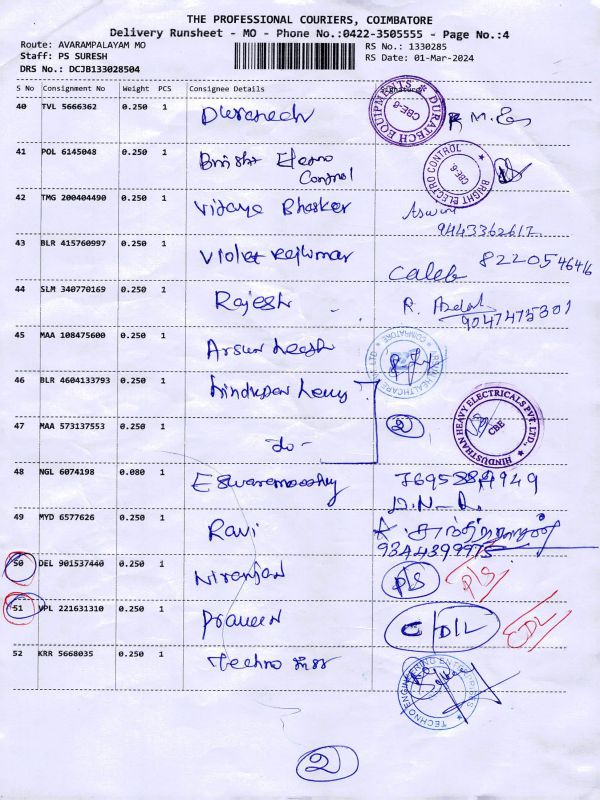 THE PROFESSIONAL COURIERS, COIMBATORE
Delivery Runsheet - MO - Phone No.:0422-3505555 - Page No.:4
Route: AVARAMPALAYAM MO
RS No.: 1330285
Staff: PS SURESH
RS Date: 01-Mar-2024
DRS No.: DCJB133028504
S No Consignment No Weight PCS Consignee Details Signature
40 TVL 5666362 0.250 1
DURATECH EQUIPMENTS CBE-6
41 POL 6145048 0.250 1 Bright Electro
Control
BRIGHT ELECTRO CONTROL CBE-6
42 TMG 200404490 0.250 1 Vijaya Bhasker Aswin
9443362617
43 BLR 415760997 0.250 1 Violet Rajkumar Caleb 8220546416
44 SLM 340770169 0.250 1 Rajesh R.
9047475301
45 MAA 108475600 0.250 1
COIMBATORE HEALTHCARE PVT LTD
46 BLR 4604133793 0.250 1 Hindustan Heavy
HINDUSTHAN HEAVY ELECTRICALS PVT. LTD., CBE
47 MAA 573137553 0.250 1 do- 2
48 NGL 6074198 0.080 1 Eswaramoorthy
49 MYD 6577626 0.250 1 Ravi
9344399975
50 DEL 901537440 0.250 1 Niranjan P/S P/S
51 VPL 221631310 0.250 1 Praveen C/DL CDL
52 KRR 5668035 0.250 1 Techno
TECHNO ENGINEERING ENTERPRISES
2